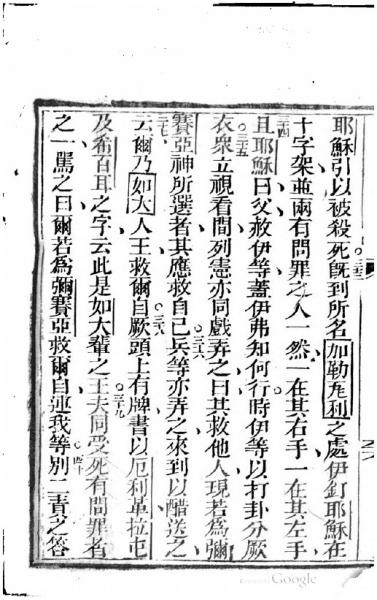 耶穌引以被殺死旣到所名加勒尣利之處伊釘耶穌在
十字架並兩有問罪之人一然一在其右手一在其左手
且耶穌曰父救伊等蓋伊弗知何行時伊等以打卦分厥
衣衆立視看間列憲亦同戲弄之曰其救他人現若爲彌
賽亞神所選者其應救自己兵等亦弄之來到以醋送之
云爾乃如大人王救爾自厥頭上有牌書以厄利革拉屯
及希百耳之字云此是如大輩之王夫同受死有問罪者
之一罵之曰爾若爲彌賽亞救爾自連我等別二責之答
三十四
三十五
三十六
三十七
三十九
四十
Google